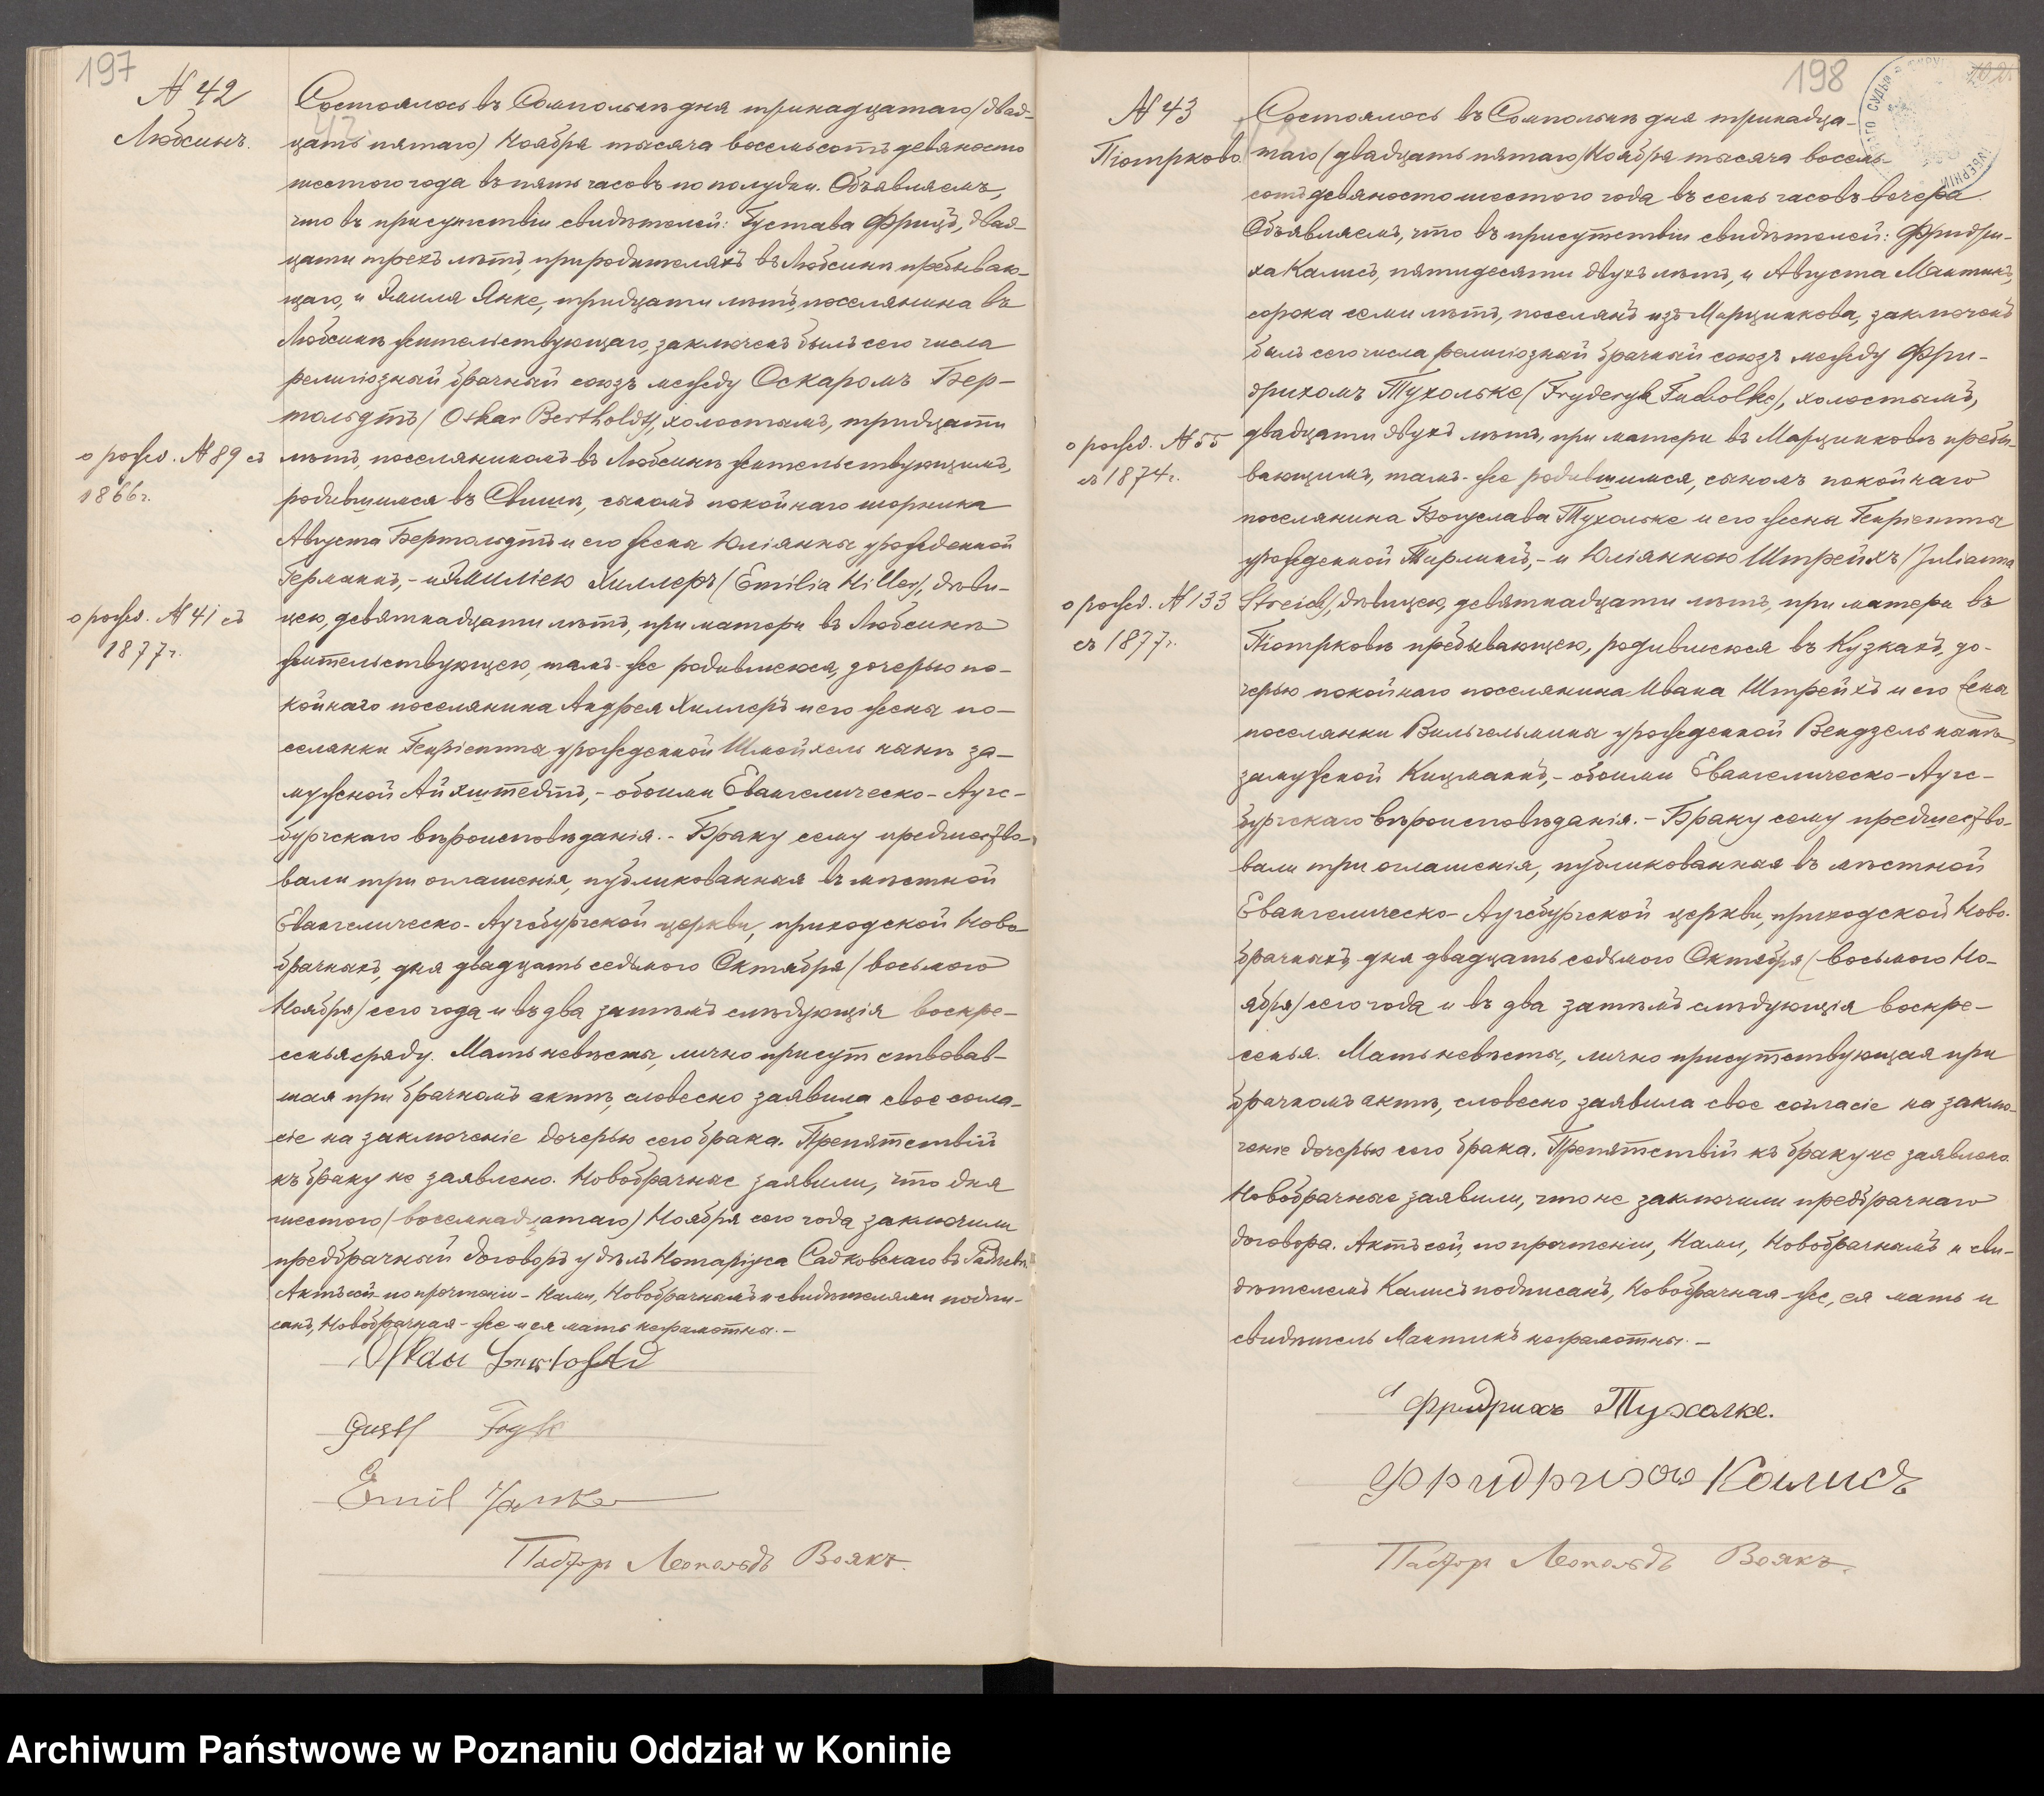 197
№ 42
Любсинъ.
Состоялось въ Сомпольнѣ дня тринадцатаго (двад-
цать пятаго) Ноября тысяча восемьсотъ девяносто
шестого года въ пять часовъ по полудни. Объявляемъ,
что въ присутствіи свидѣтелей: Густава Фрицъ, двад-
цати трехъ лѣтъ, при родителяхъ въ Любсинѣ пребываю-
щаго, и Эмиля Янке, тридцати лѣтъ, поселянина въ
Любсинѣ жительствующаго, заключенъ былъ сего числа
религіозный брачный союзъ между Оскаромъ Бер-
тольдтъ (Oskar Bertholdt), холостымъ, тридцати
о рожд. № 89 съ
1866 г.
лѣтъ, поселяниномъ въ Любсинѣ жительствующимъ,
родившимся въ Свишѣ, сыномъ покойнаго шорника
Августа Бертольдтъ и его жены Юліянны урожденной
Германъ, - и Эмиліею Хиллеръ (Emilia Hiller), дѣви-
о рожд. № 41 съ
1877 г.
цею, девятнадцати лѣтъ, при матери въ Любсинѣ
жительствующею, тамъ-же родившеюся, дочерью по-
койнаго поселянина Андрея Хиллеръ и его жены по-
селянки Генріетты урожденной Шмейхель нынѣ за-
мужной Айхштедтъ, - обоими Евангелическо-Аугс-
бургскаго вѣроисповѣданія. - Браку сему предшество-
вали три оглашенія, публикованныя въ мѣстной
Евангелическо-Аугсбургской церкви, приходской Ново-
брачныхъ, дня двадцать седьмого Октября (восьмого
Ноября) сего года и въ два затѣмъ слѣдующія воскре-
сенья сряду. Мать невѣсты, лично присутствовав-
шая при брачномъ актѣ, словесно заявила свое согла-
сіе на заключеніе дочерью сего брака. Препятствій
къ браку не заявлено. Новобрачные заявили, что дня
шестого (восемнадцатаго) Ноября сего года заключили
предбрачный договоръ у дѣлъ Нотаріуса Садковскаго въ
Актъ сей по прочтеніи - Нами, Новобрачнымъ и свидѣтелями подпи-
санъ, Новобрачная-же и ея мать неграмотны. -
Oskar Bertholdt
Gustf
Emil Janke
Пасторъ Леопольдъ Воякъ.
198
№ 43
Піотрково.
Состоялось въ Сомпольнѣ дня тринадца-
таго (двадцать пятаго) Ноября тысяча восемь-
сотъ девяносто шестого года въ семь часовъ вечера.
Объявляемъ, что въ присутствіи свидѣтелей: Фридри-
ха Калисъ, пятидесяти двухъ лѣтъ, и Августа Мантикъ,
сорока семи лѣтъ, поселянъ изъ Марцинкова, заключенъ
былъ сего числа религіозный брачный союзъ между Фри-
дрихомъ Тухольке (Fryderyk Tucholke), холостымъ,
о рожд. № 55
съ 1874 г.
двадцати двухъ лѣтъ, при матери въ Марцинковѣ пребы-
вающимъ, тамъ-же родившимся, сыномъ покойнаго
поселянина Богуслава Тухольке и его жены Генріетты
урожденной Тирлингъ, - и Юліянною Штрейхъ (Julianna
о рожд. № 133
съ 1877 г.
Streich), дѣвицею, девятнадцати лѣтъ, при матери въ
Піотрковѣ пребывающею, родившеюся въ Кузкахъ, до-
черью покойнаго поселянина Ивана Штрейхъ и его жены
поселянки Вильгельмины урожденной Вендзель нынѣ
замужной Кицманнъ, - обоими Евангелическо-Аугс-
бургскаго вѣроисповѣданія. - Браку сему предшество-
вали три оглашенія, публикованныя въ мѣстной
Евангелическо-Аугсбургской церкви, приходской Ново-
брачныхъ, дня двадцать седьмого Октября (восьмого Но-
ября) сего года и въ два затѣмъ слѣдующія воскре-
сенья. Мать невѣсты, лично присутствующая при
брачномъ актѣ, словесно заявила свое согласіе на заклю-
ченіе дочерью сего брака. Препятствій къ браку не заявлено.
Новобрачные заявили, что не заключили предбрачнаго
договора. Актъ сей, по прочтеніи, Нами, Новобрачнымъ и сви-
дѣтелемъ Калисъ подписанъ, Новобрачная-же, ея мать и
свидѣтель Мантикъ неграмотны. -
Фридрихъ Тухолке.
Фридрихъ Калисъ
Пасторъ Леопольдъ Воякъ.
Archiwum Państwowe w Poznaniu Oddział w Koninie